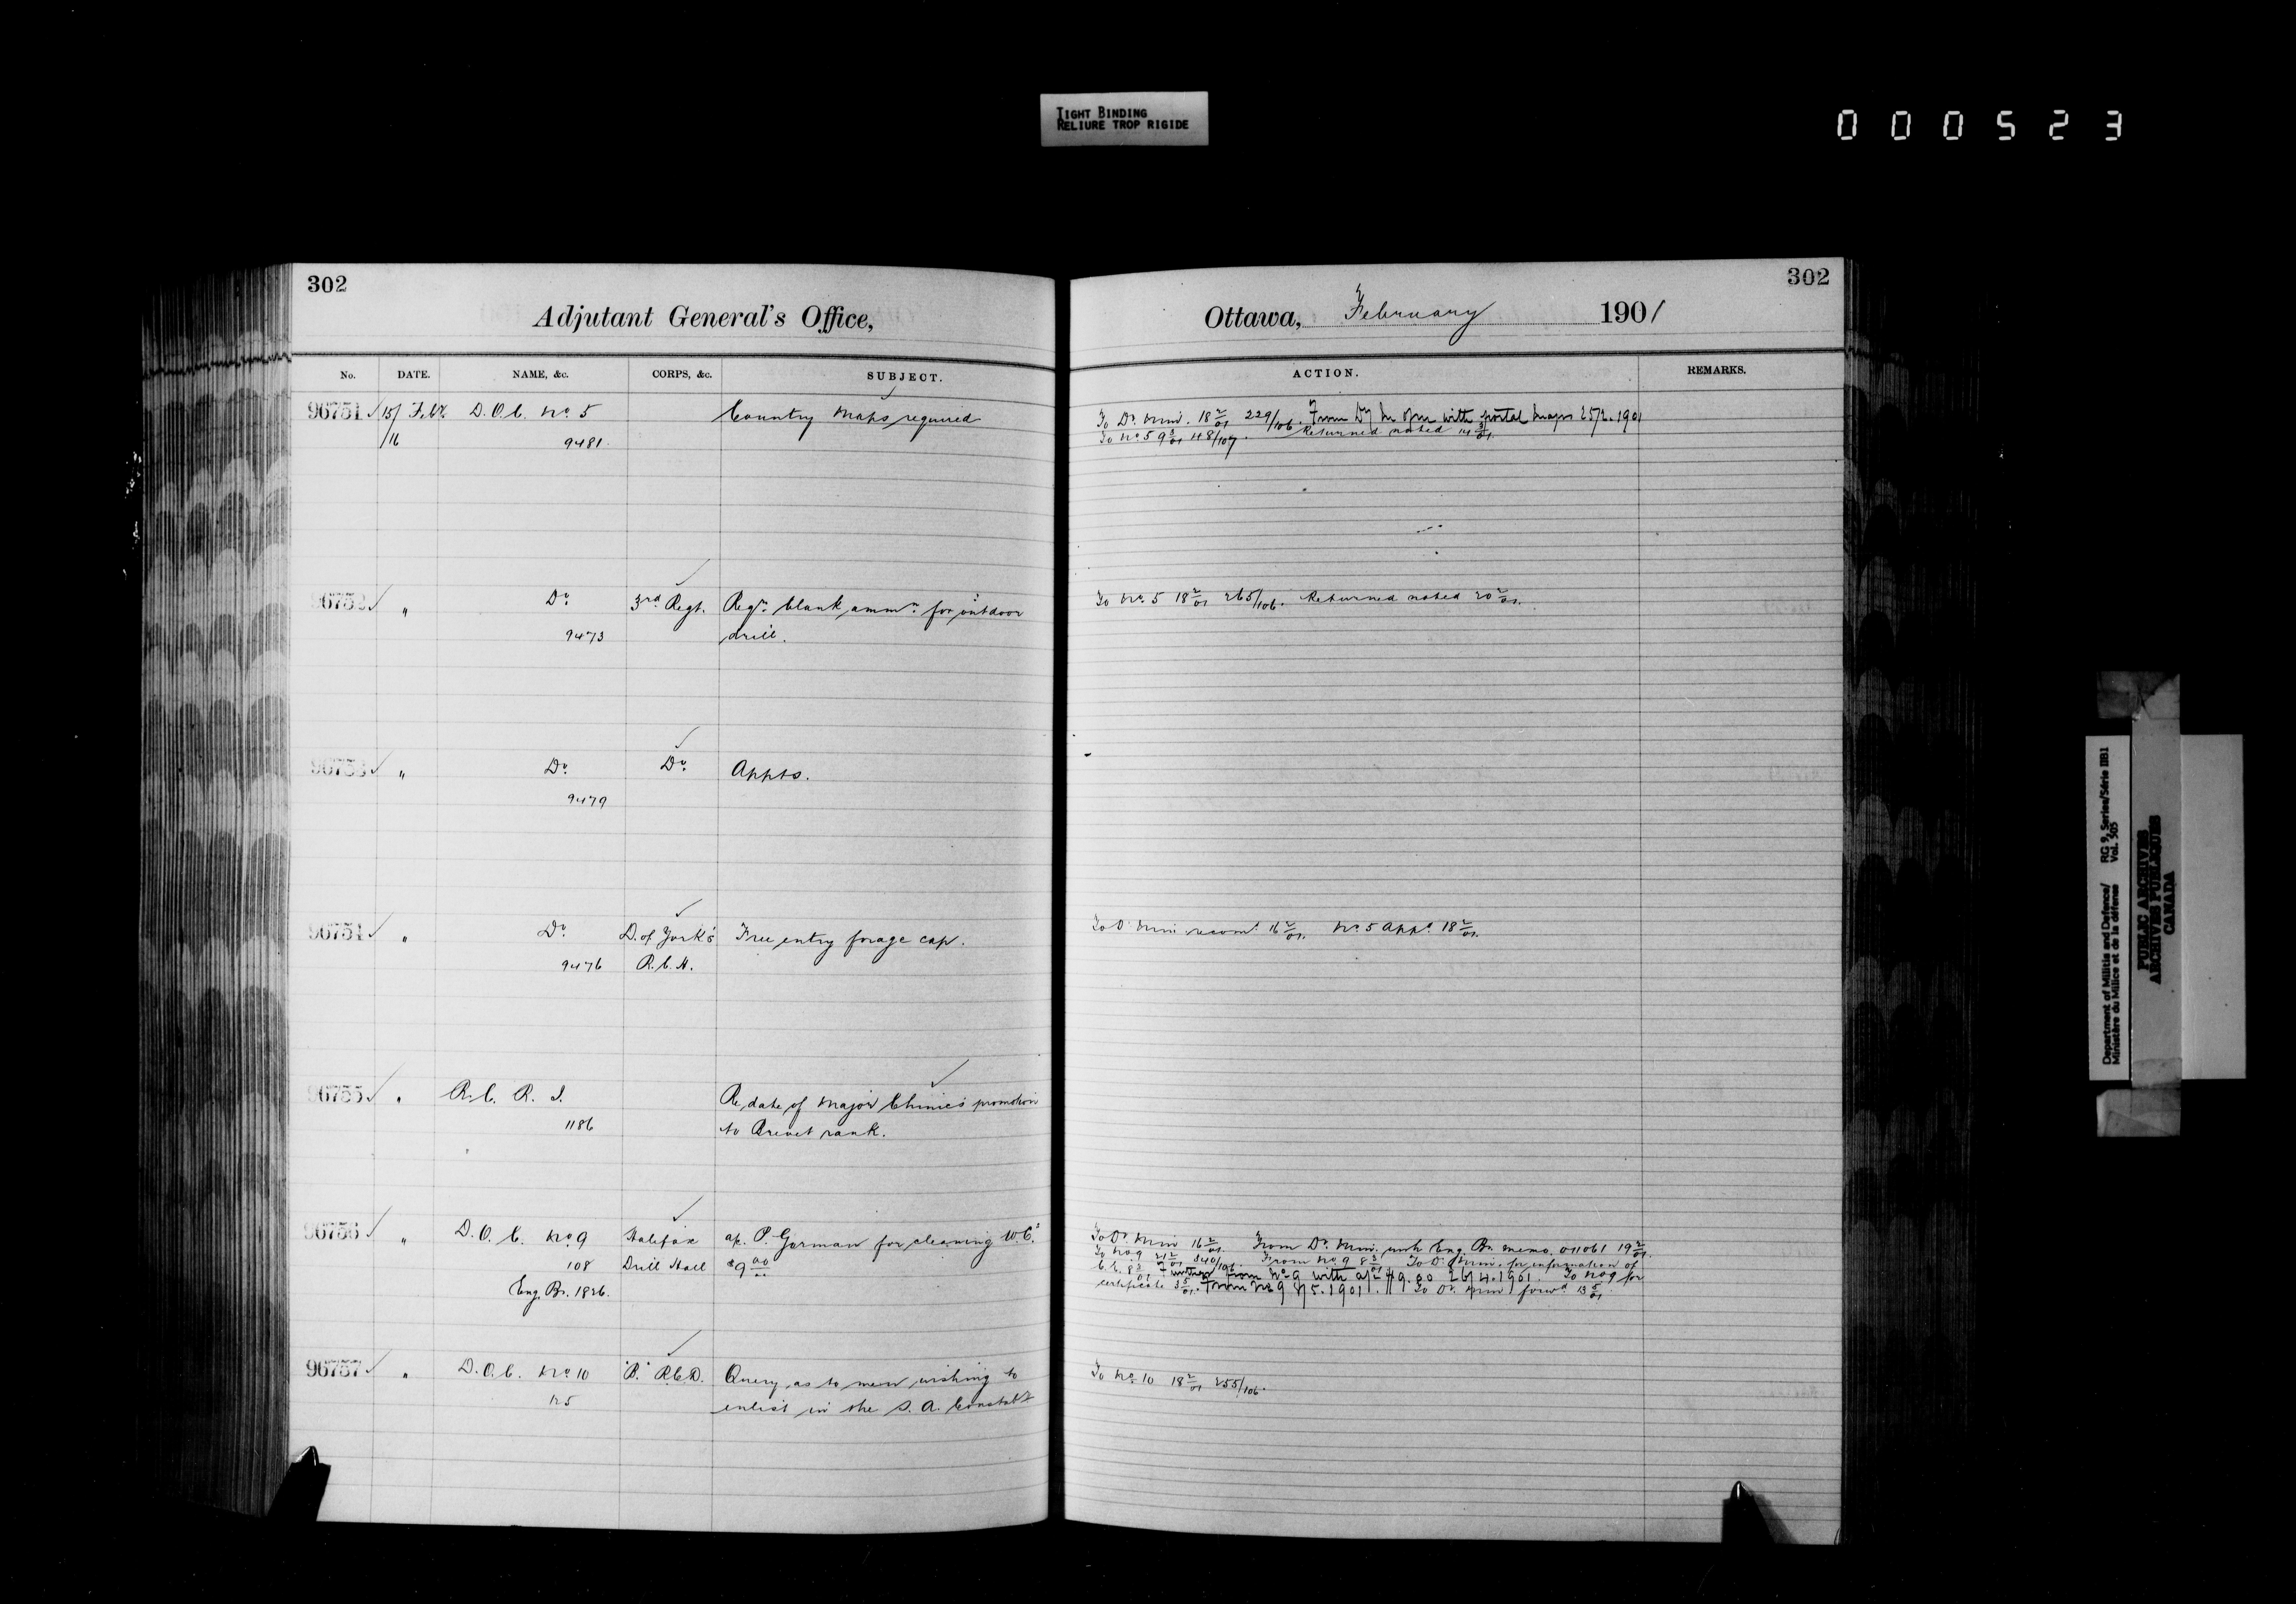 TIGHT BINDING
RELIURE TROP RIGIDE
000523
302
Adjutant General's Office,
No. DATE. NAME, &c. CORPS, &c. SUBJECT.
96751 15/ Feb. D.O.C. No. 5 Country maps required
/16 9481.
96752 " Do. 3rd Regt. Regn. blank ammn. for outdoor
9473 drill.
96753 " Do. Do. Appts.
9479
96754 " Do. D. of York's Free entry forage cap.
9476 R.C.H.
96755 " R.C.R.I. Re date of Major promotion
1186 to Brevet rank.
96756 " D.O.C. No. 9 Halifax a/c. P. Gorman for cleaning W.C.s
108 Drill Hall $9.00
Eng. Br. 1826.
96757 " D.O.C. No. 10 "B" R.C.D. Query as to men wishing to
125 enlist in the S.A. Constaby
302
Ottawa, February 1901
ACTION. REMARKS.
To Dr. Min. 18 2/01 229/106. From Dy Mn of M with postal maps 25/2.1901
To No. 5 9 3/01 48/107. Returned noted 14 3/01.
To No. 5 18 2/01 265/106. Returned noted 20 2/01.
To D. Min. recomd. 16 2/01. No. 5 Appd. 18 2/01.
To Dr. Min 16 2/01. From Dr. Min. with Eng. Br. memo. 011061 19 2/01.
To No 9 21 2/01 340/106. From No. 9 8 3/01 To D. Min. for information of
C.E. 8 3/01 Further from No. 9 with a/c $9.00 26/4.1901. To No 9 for
certificate 3 5/01. From No 9 9/5.1901. To Dr. Min forwd. 13 5/01.
To No. 10 18 2/01 255/106.
Department of Militia and Defence/ RG 9, Series/Série IIB1
Ministère du Milice et de la défense Vol. 505
PUBLIC ARCHIVES
ARCHIVES PUBLIQUES
CANADA